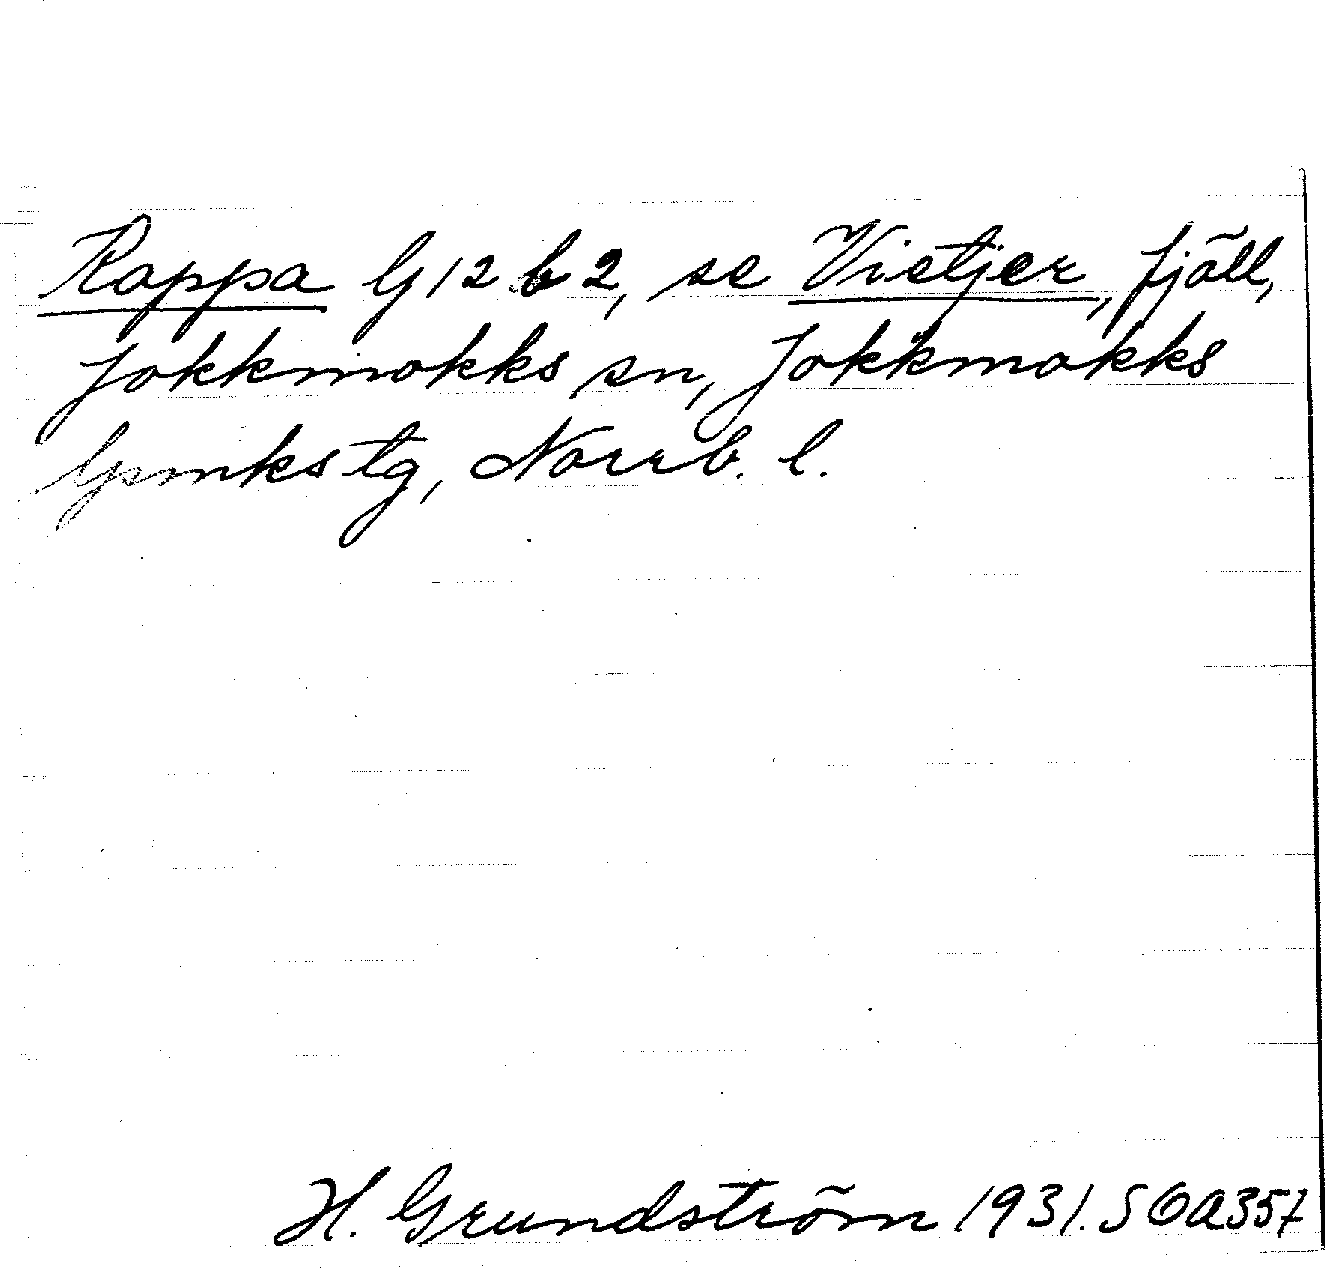 Rappa G12 b 2, se Vietjer, fjäll,
Jokkmokks sn, Jokkmokks
lpmks tg, Norrb. l.
H. Grundström 1931. SOA357